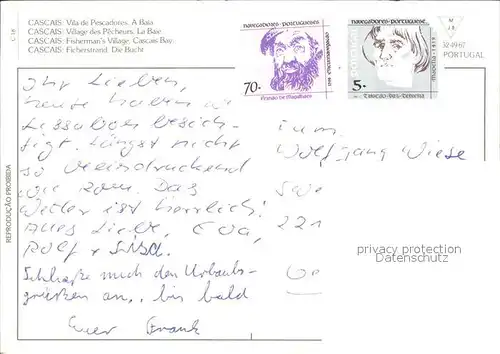 CASCAIS: Vila de Pescadores. A Baía
CASCAIS: Village des Pêcheurs. La Baie
CASCAIS: Fisherman's Village. Cascais Bay
CASCAIS: Ficherstrond. Die Bucht
C-18
NAVEGADORES-PORTUGUESES
70.
FERNÃO DE MAGALHÃES
NAVEGADORES-PORTUGUESE
5.
MJB
32-49-67
PORTUGAL
REPRODUÇÃO PROIBIDA
Ihr Lieben,
heute haben wir
Lissabon besich-
tigt. Längst nicht
so beeindruckend
wie Rom. Das
Wetter ist herrlich!
Alles Liebe, Eva,
Rolf +
Schließe mich den Urlaubs-
grüßen an.. bis bald
Euer Frank
Fam.
Wolfgang Wiese
221
privacy protection
Datenschutz